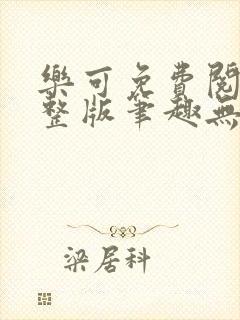 樂可免費閱
整版筆趣無
梁居科